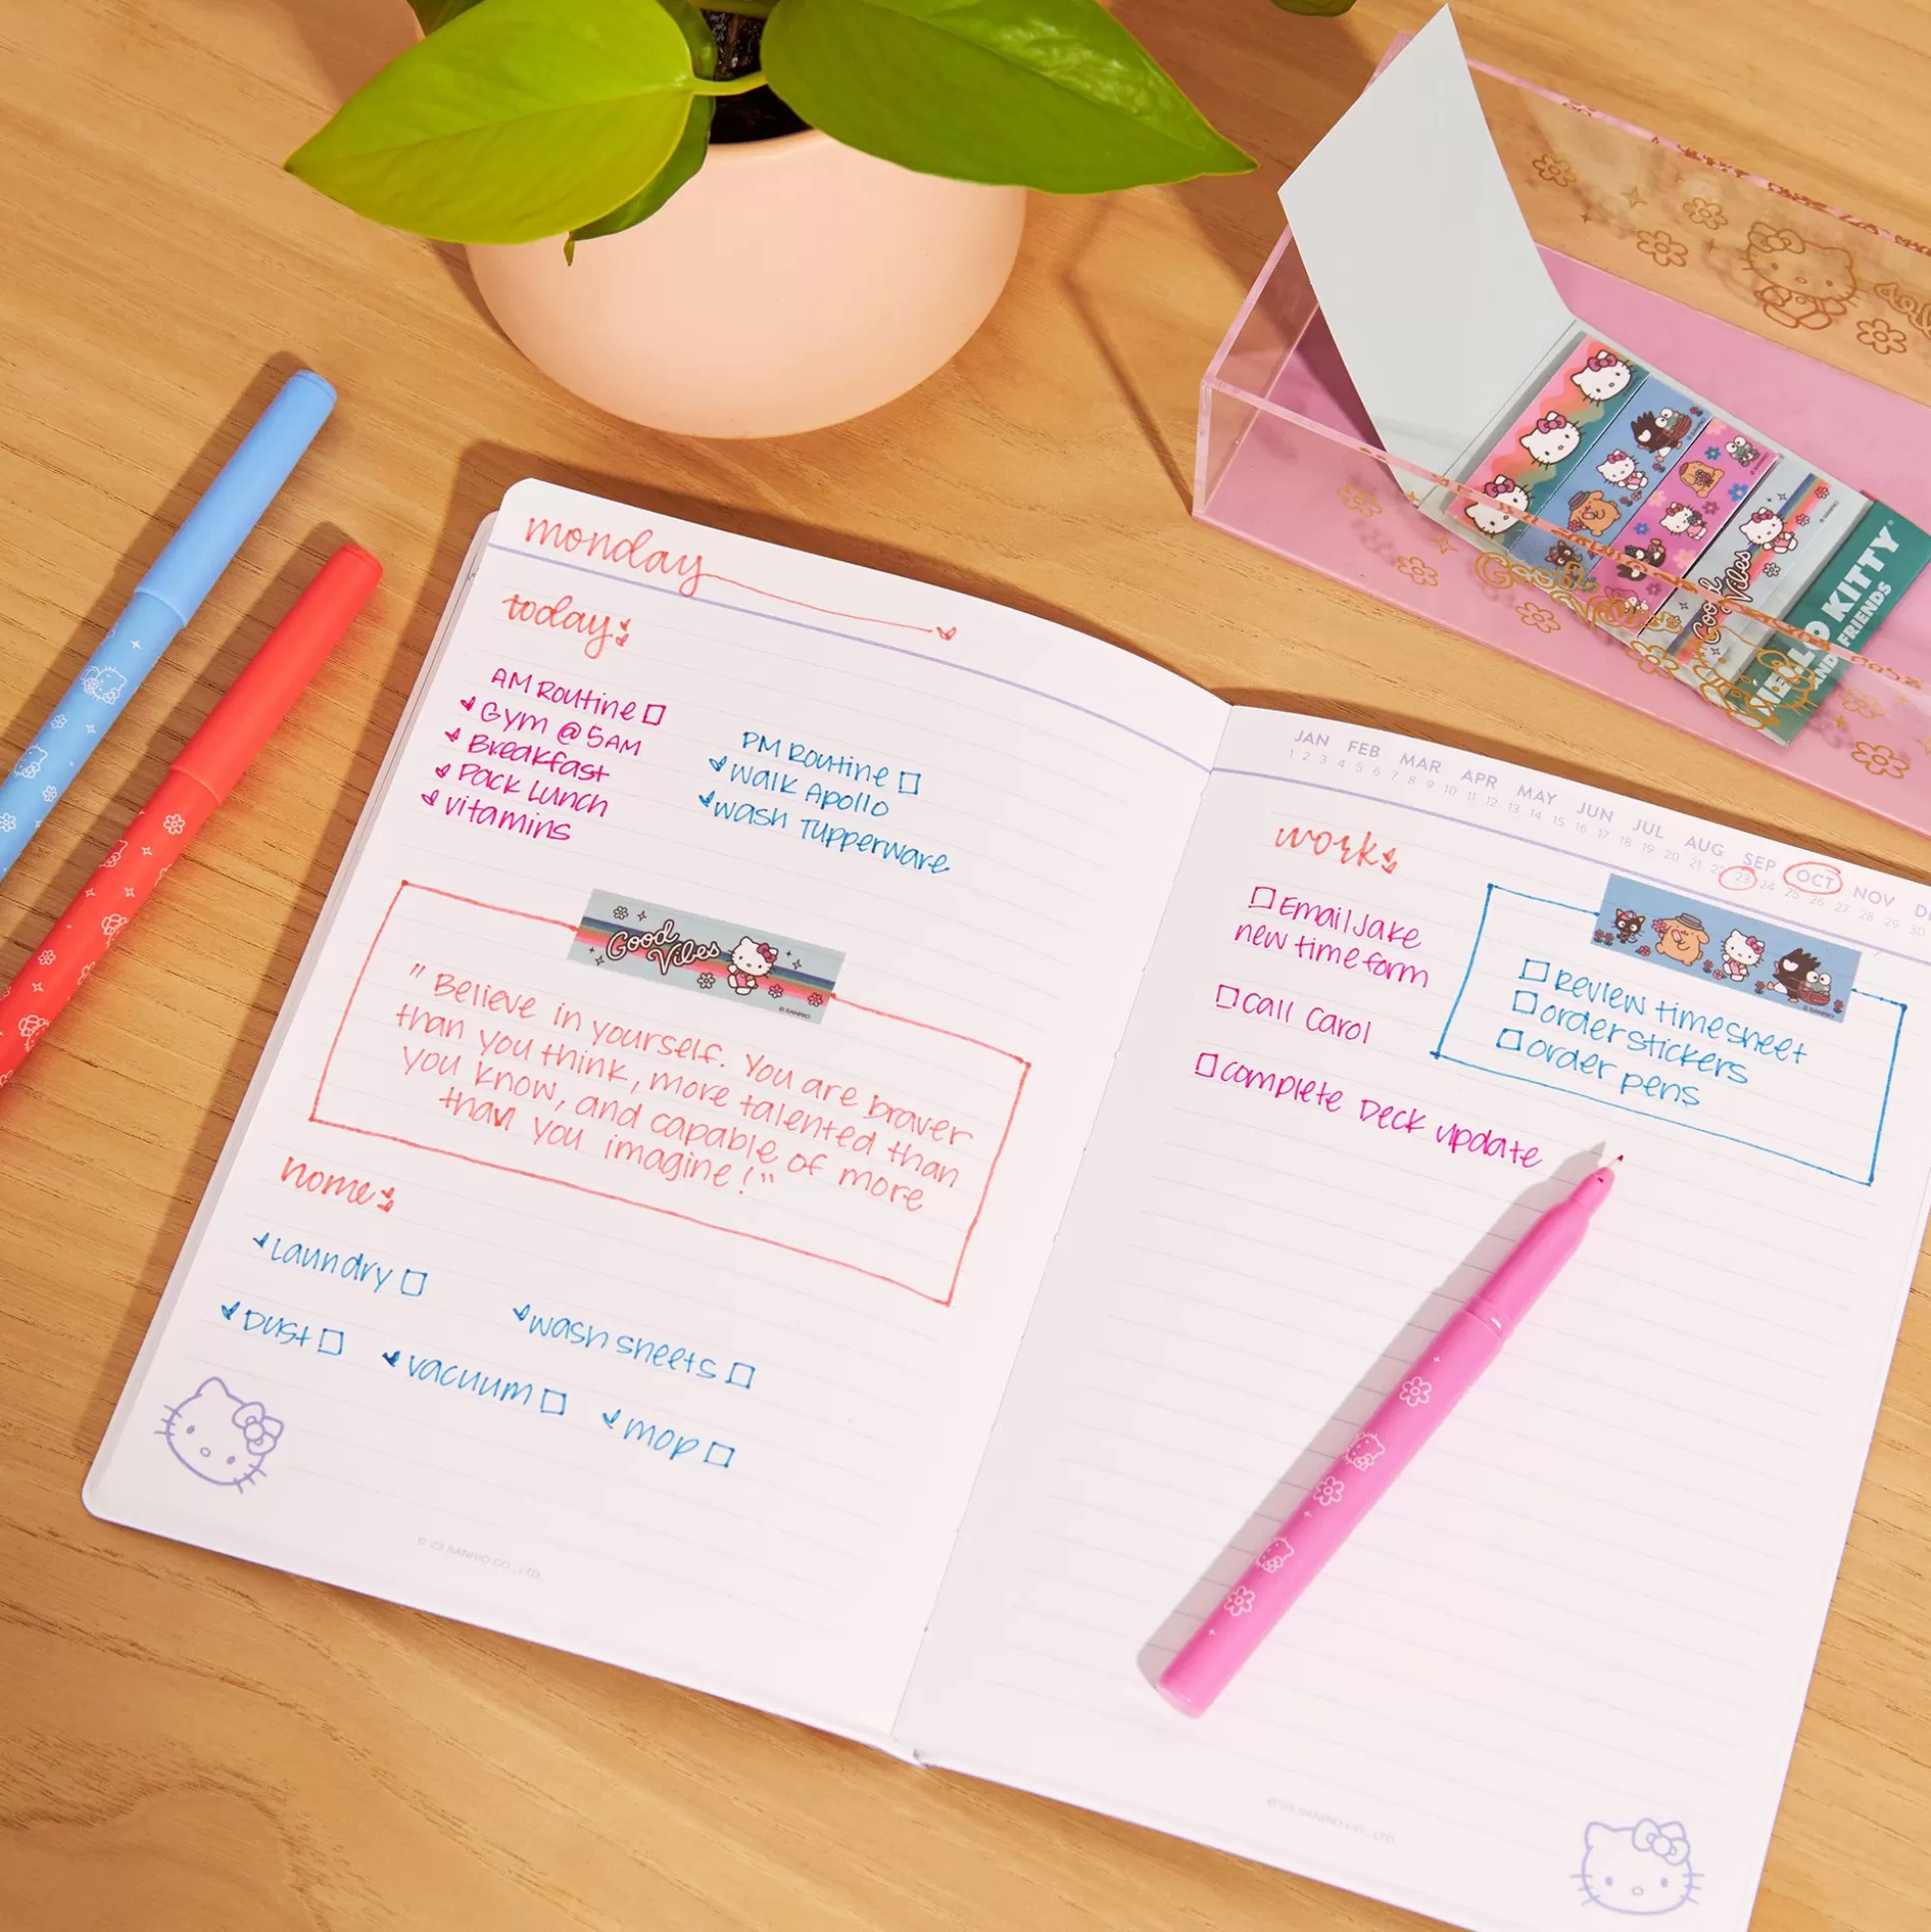 monday
today:
AM Routine
Gym @ 5AM
Breakfast
Pack Lunch
Vitamins
PM Routine
Walk Apollo
Wash Tupperware
Good
Vibes
© SANRIO
"Believe in yourself. You are braver
than you think, more talented than
you know, and capable of more
than you imagine!"
home:
Laundry
Dust
Wash sheets
Vacuum
mop
© '23 SANRIO CO., LTD.
JAN FEB MAR APR MAY JUN JUL AUG SEP OCT NOV
1 2 3 4 5 6 7 8 9 10 11 12 13 14 15 16 17 18 19 20 21 22 23 24 25 26 27 28 29 30
work:
Email Jake
new time form
Call Carol
Complete Deck update
Review timesheet
order stickers
order pens
© SANRIO
© '23 SANRIO CO., LTD.
Good
Vibes
HELLO KITTY
AND FRIENDS
Good